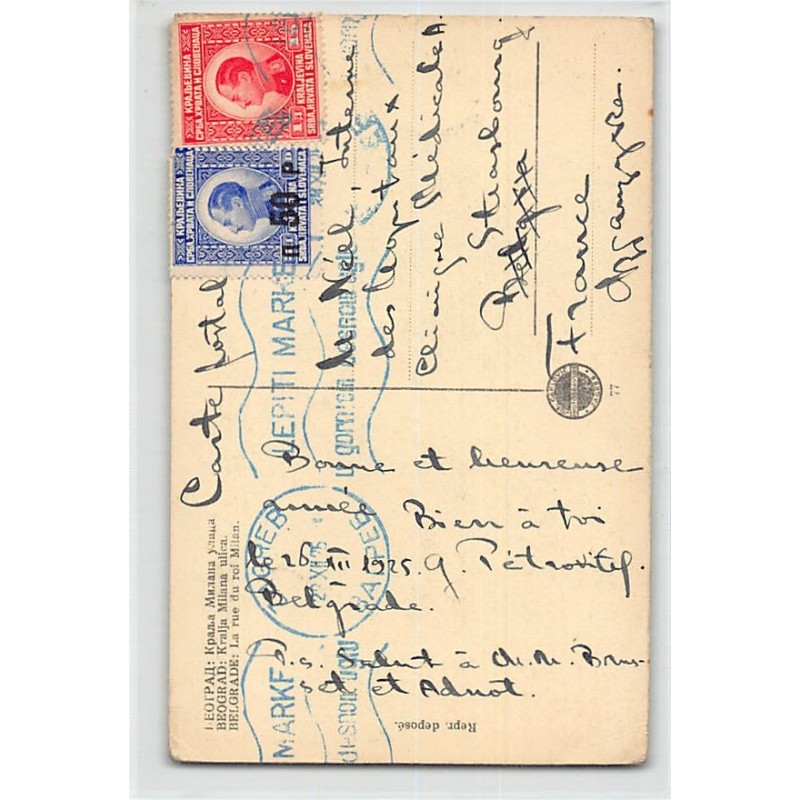 КРАЉЕВИНА
СРБА, ХРВАТА И СЛОВЕНАЦА
KRALJEVINA
SRBA, HRVATA I SLOVENACA
КРАЉЕВИНА
СРБА, ХРВАТА И СЛОВЕНАЦА
KRALJEVINA
SRBA, HRVATA I SLOVENACA
П 50 P
Carte postale
M. Néel, Interne
des Hopitaux
Clinique Médicale A.
Strasbourg
France
Француска.
77
LEPITI MARKE
u gornjem desnom uglu
ZAGREB
ЗАГРЕБ
MARKE
desnom uglu
Bonne et heureuse
année Bien à toi
26 XII 1925. G. Pétrovitch
Belgrade.
P.S. Salut à M.M. Brus-
set et Adnot.
БЕОГРАД: Краља Милана улица
BEOGRAD: Kralja Milana ulica.
BELGRADE: La rue du roi Milan.
Repr. deposé.